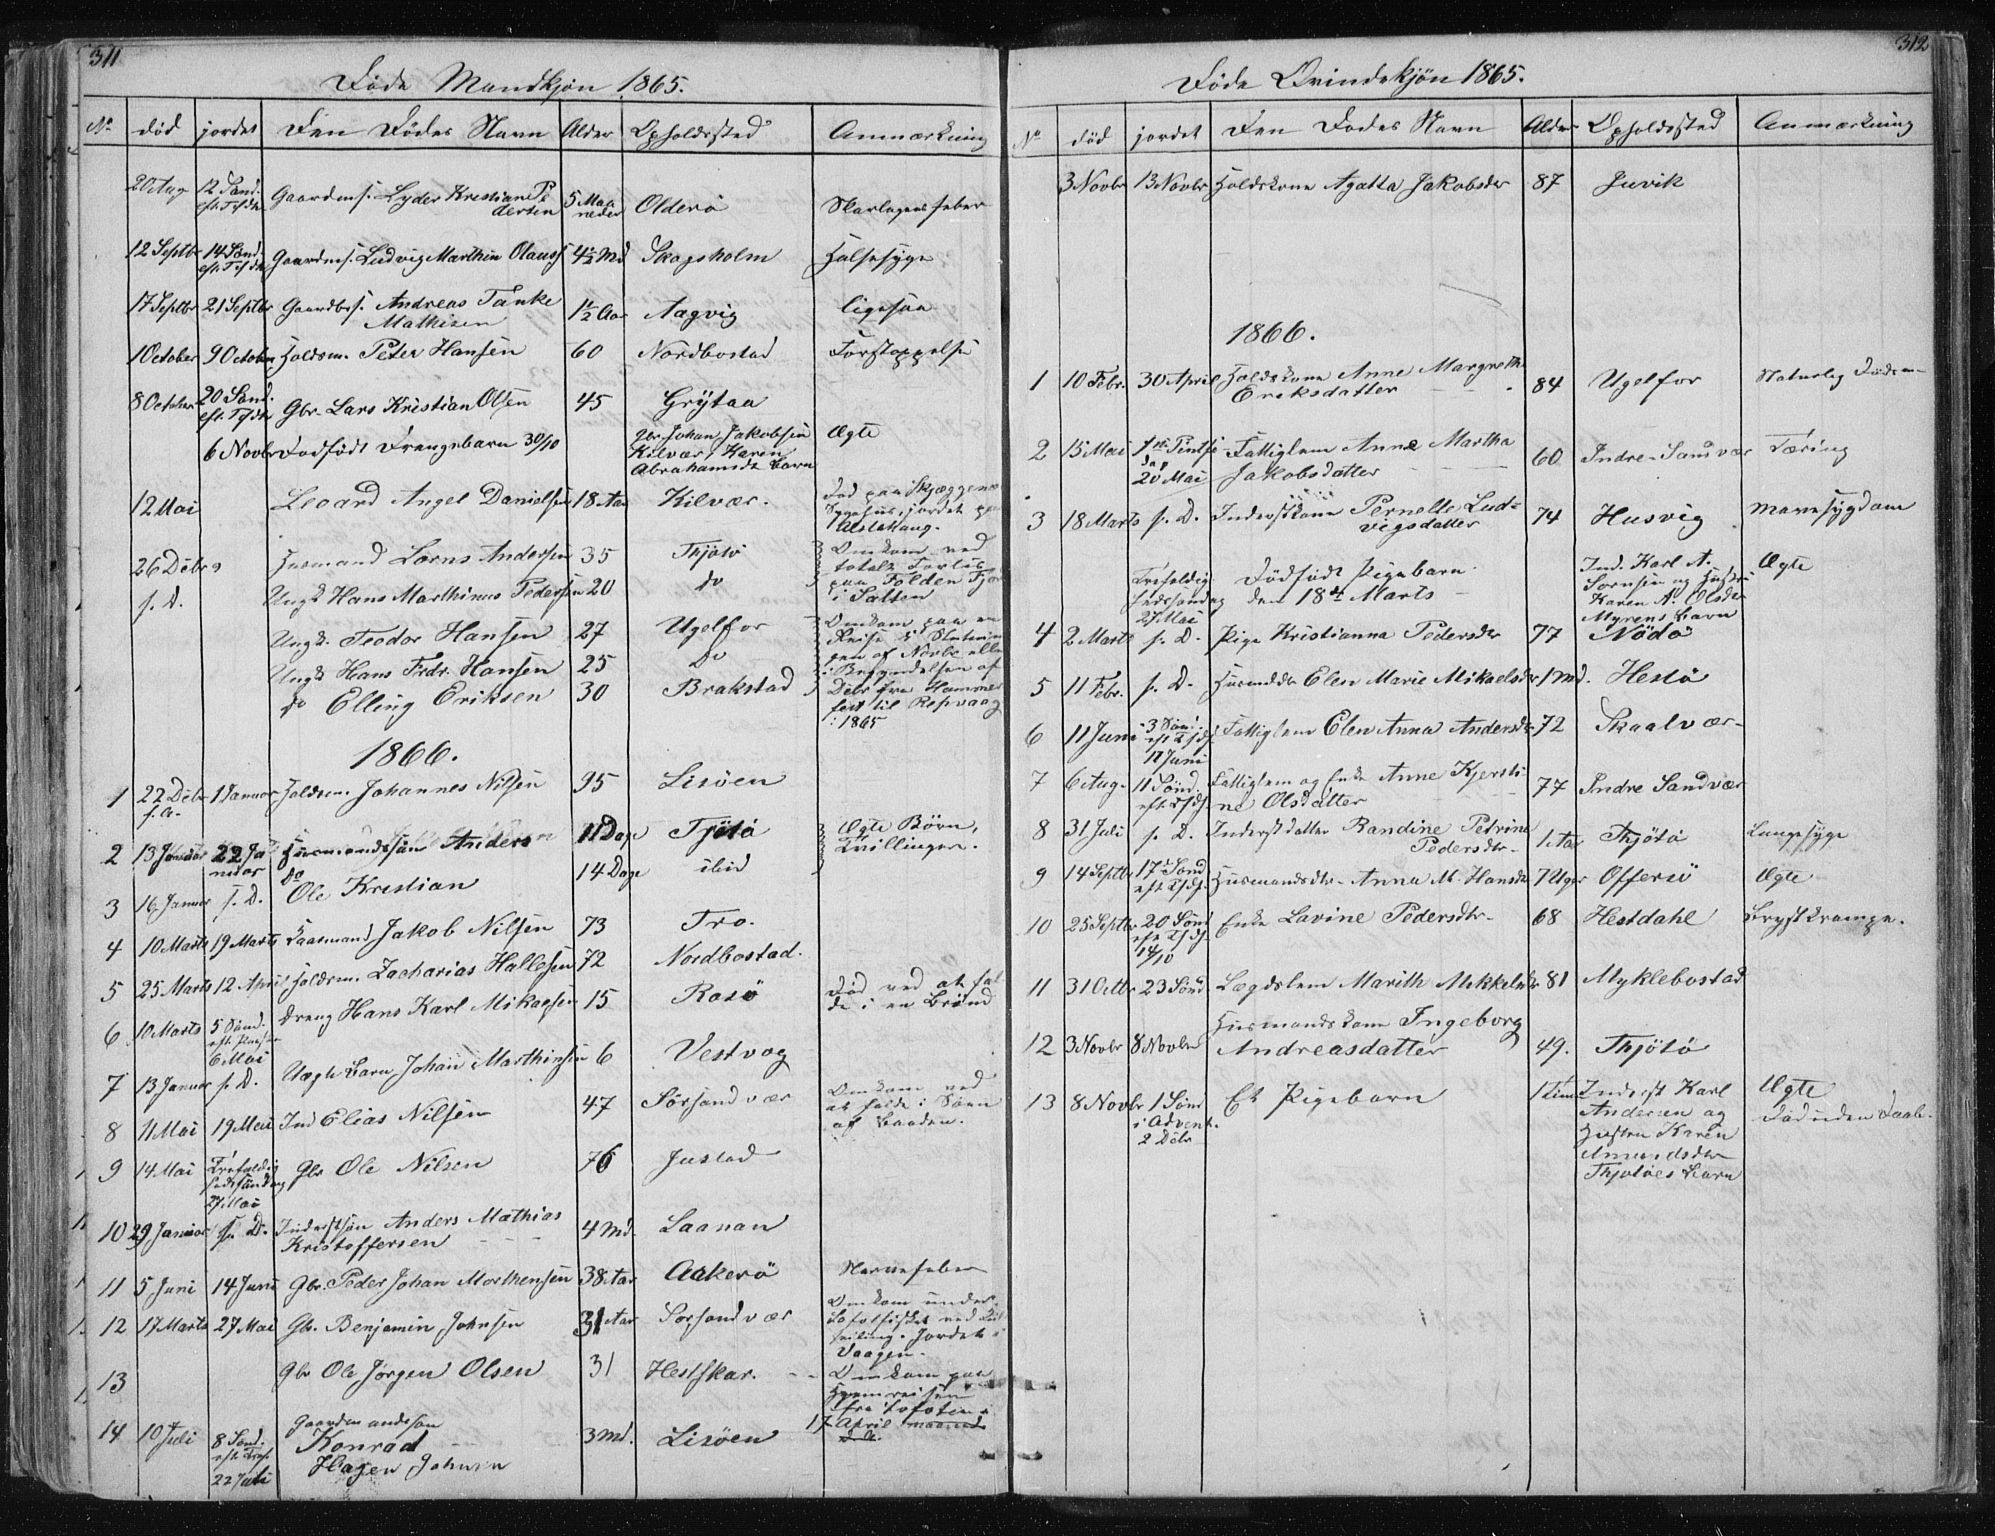 311
Døde Mandkjøn 1865.
No død jordet Den Dødes Navn Alder Opholdssted Anmærkning
20 Aug 12 Sønd. eft. Tfdh Gaardms. Lyder Kristian Pedersen 5 Maaneder Olderø Skarlagensfeber
12 Septbr 14 Sønd. eft. Tfdh Gaardms. Ludvig Marthin Olauss 4½ Md Skogsholm Halsesyge
17 Septbr 21 Septbr Gaardbrs. Andreas Tanke Mathisen 1½ Aar Aagvig ligesaa
1 October 9 October Holdsm. Peter Hansen 60 Nordbostad Forstoppelse
8 October 20 Sønd. eft. Tfdh Gbr. Lars Kristian Olsen 45 Grytaa
6 Novbr Dødfødt Drengebarn 30/10 Gbr. Johan Jakobsen Kilvær, Karen Abrahamsdr Barn Ægte
12 Mai Leoard Angel Danielsen 18 Aar Kilvær. Død paa Skjeggenæs Sygehus, jordet paa Alstahaug.
26 Debr Husmand Lorns Andersen 35 Thjøtø Omkom ved
s. D. Ungk Hans Marthinus Pedersen 20 do totalt Forlis paa Folden Fjor i Salten
Ungk. Teodor Hansen 27 Ugelfor Omkom paa en
Ungk Hans Fredr. Hansen 25 do Reise i Slutningen af Novbr eller i Begyndelsen af
do Elling Eriksen 30 Brakstad Debr fra Hammerfest til Repvaag i 1865
1866.
1 22 Debr f. A. 1 Januar Holdsm. Johannes Nilsen 95 Lisøen
2 13 Januar 22 Januar Husmandssøn Anders 11 Dage Tjøtø Ægte Børn, Tvillinger.
3 16 Januar s. D. Do Ole Kristian 14 Dage ibid
4 10 Marts 19 Marts Kaarmand Jakob Nilsen 73 Tro.
5 25 Marts 12 April Holdsm. Zacharias Hallesen 72 Nordbostad.
6 10 Marts 5 Sønd. eft. Paaske 6 Mai Dreng Hans Karl Mikaelsen 15 Rosø Død ved at falde i en Brønd
7 13 Januar s. D. Uægte Barn Johan Marthinsen 6 Vestvog
8 11 Mai 19 Mai Ind Elias Nilsen 47 Sørsandvær Omkom ved at falde i Søen af Baaden.
9 14 Mai Trefoldighedssøndag 27 Mai Gbr Ole Nilsen 76 Justad
10 29 Januar s. D. Inderstsøn Anders Mathias Kristoffersen 4 Md. Laanan
11 5 Juni 14 Juni Gbr. Peder Johan Morthensen 38 Aar Aakerø Nervefeber
12 17 Marts 27 Mai Gbr. Benjamin Johnsen 31 Aar Sørsandvær Omkom under Lofotfisket ved Jordet i Vaagen.
13 Gbr Ole Jørgen Olsen 31 Hestskar. Omkom paa Hjemreisen fra Lofoten i
14 10 Juli 8 Sønd. eft. Tref. 22 Juli Gaardmandssøn Konrad Hagen Johnsen 3 Md. Lisøen 17 April maaned d. A.
312
Døde Qvindekjøn 1865.
No død jordet Den Dødes Navn Alder Opholdssted Anmærkning
3 Novbr 13 Novbr Holdskone Agatta Jakobsdr 87 Juvik
1866.
1 10 Febr. 30 April Holdskone Anne Margrethe Eriksdatter 84 Ugelfor Naturlig Død
2 15 Mai 1ste Pintsedag 20 Mai Fattiglem Anne Martha Jakobsdatter 60 Indre-Sandvær Tæring
3 18 Marts s. D. Inderstkone Pernelle Ludvigsdatter 74 Husvig Mavesygdom
Trefoldighedssøndag 27 Mai Dødfødt Pigebarn den 18de Marts Ind. Karl A. Sørnsen og Hustru Karen A. Olsdr Myrens Barn Ægte
4 2 Marts s. D. Pige Kristianna Pedersdr 77 Nødø
5 11 Febr. s. D. Husmdtr Elen Marie Mikaelsdr 1 Md. Hestø
6 11 Juni 3 Sønd. eft Tfdh 17 Juni Fattiglem Elen Anna Andersdr 72 Skaalvær
7 6 Aug. 11 Sønd. eft Tfdh. Fattiglem og Enke Anne Kjerstine Olsdatter 77 Indre Sandvær
8 31 Juli s. D. Inderstdatter Randine Petrine Pedersdtr 1 Aar Thjøtø Lungesyge
9 14 Septbr 17de Sønd eft Tfdh. Husmandsdtr Anna M. Hansdr 7 Uger Offersø Ægte
10 25 Septbr 20 Sønd eft Tfdh. 14/10 Enke Lavine Pedersdtr 68 Hestdahl Brystkrampe.
11 31 Octbr 23 Sønd. Lægdslem Marith Mikkelsdr 81 Myklebostad
12 3 Novbr 8 Novbr Husmandskone Ingeborg Andreasdatter 49. Thjøtø
13 8 Novbr 1 Sønd i Advent. 2 Debr Et Pigebarn 1 Time Inderst Karl Andersen og Hustru Karen Amundsdtr Thjøtøes Barn Ægte Død uden Daab.